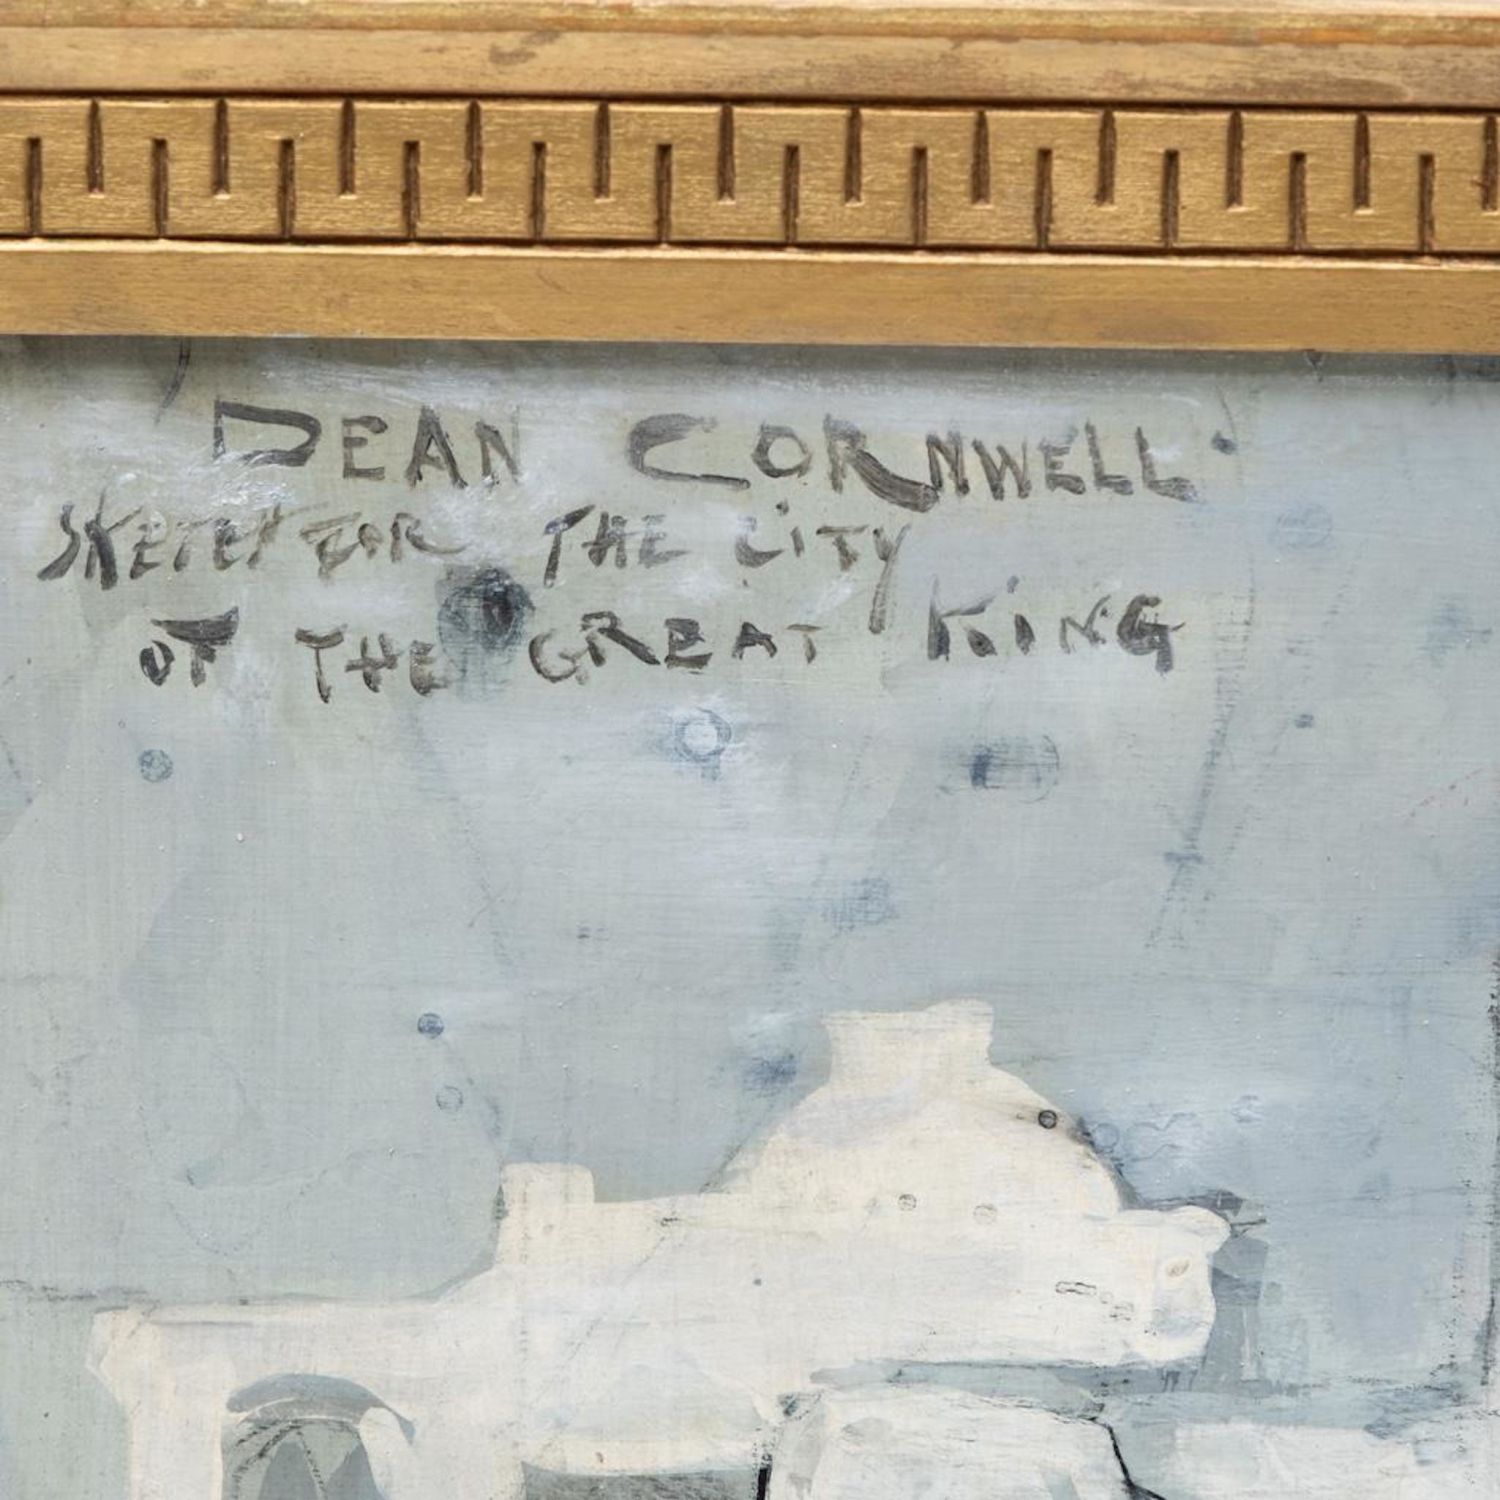 DEAN CORNWELL
SKETCH FOR THE CITY
OF THE GREAT KING